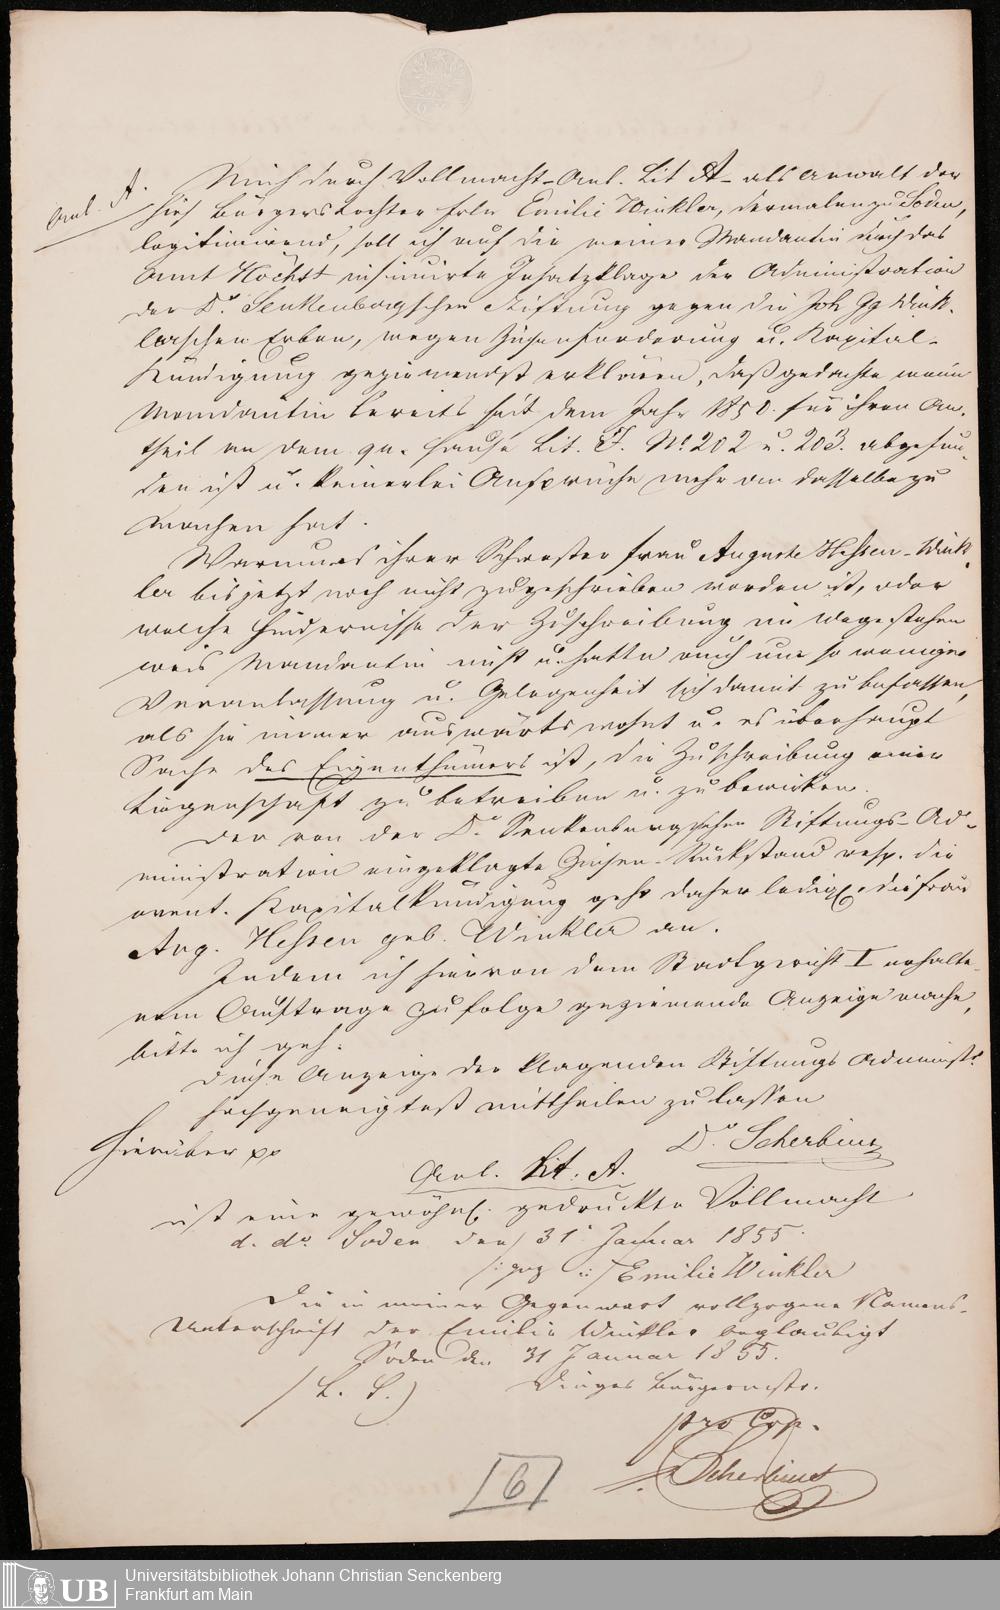 Anl. A.
Mich durch Vollmacht-Anl. Lit A- als Anwalt der
hies Bürgerstochter Frln Emilie Winkler, dermalen zu Soden,
legitimirend, soll ich auf die meiner Mandantin durch das
Amt Höchst insinuirte Insatzklage der Administration
der Dr. Senkenbergschen Stiftung gegen die Joh Gg Wink-
lerschen Erben, wegen Zinsenforderung u. Kapital-
kündigung geziemendst erklären, daß gedachte meine
Mandantin bereits seit dem Jahr 1850. für ihren An-
theil an dem qu. Hause Lit. J. No 202 u. 203. abgefun-
den ist u. keinerlei Ansprüche mehr an dasselbe zu
machen hat.
Warum es ihrer Schwester Frau Auguste Hessen-Wink-
ler bis jetzt noch nicht zugeschrieben worden ist, oder
welche Hindernisse der Zuschreibung im Wege stehen
weis Mandantin nicht u. hatte auch um so weniger
Veranlassung u. Gelegenheit sich damit zu befassen,
als sie immer auswärts wohnt u. es überhaupt
Sache des Eigenthümers ist, die Zuschreibung einer
Liegenschaft zu betreiben u. zu bewirken.
Der von der Dr. Senkenbergschen Stiftungs-Ad-
ministration eingeklagte Zinsen-Rückstand resp. die
event. Kapitalkündigung geht daher ledigl. die Frau
Aug. Hessen geb. Winkler an.
Indem ich hiervon dem Stadtgericht I erhalte-
nem Auftrage zufolge geziemende Anzeige mache,
bitte ich geh.
diese Anzeige der klagenden Stiftungs Administ.
hochgeneigtest mittheilen zu lassen
Hierüber pp
Dr. Scherbius
Anl. Lit. A.
ist eine gewöhnl. gedruckte Vollmacht
d. do. Soden den 31 Januar 1855.
/: gez :/ Emilie Winkler
Die in meiner Gegenwart vollzogene Namens-
Unterschrift der Emilie Winkler beglaubigt
Soden den 31 Januar 1855.
(L. S.) Dinges Bürgermstr.
pro Cop.
Scherbius
6
UB
Universitätsbibliothek Johann Christian Senckenberg
Frankfurt am Main